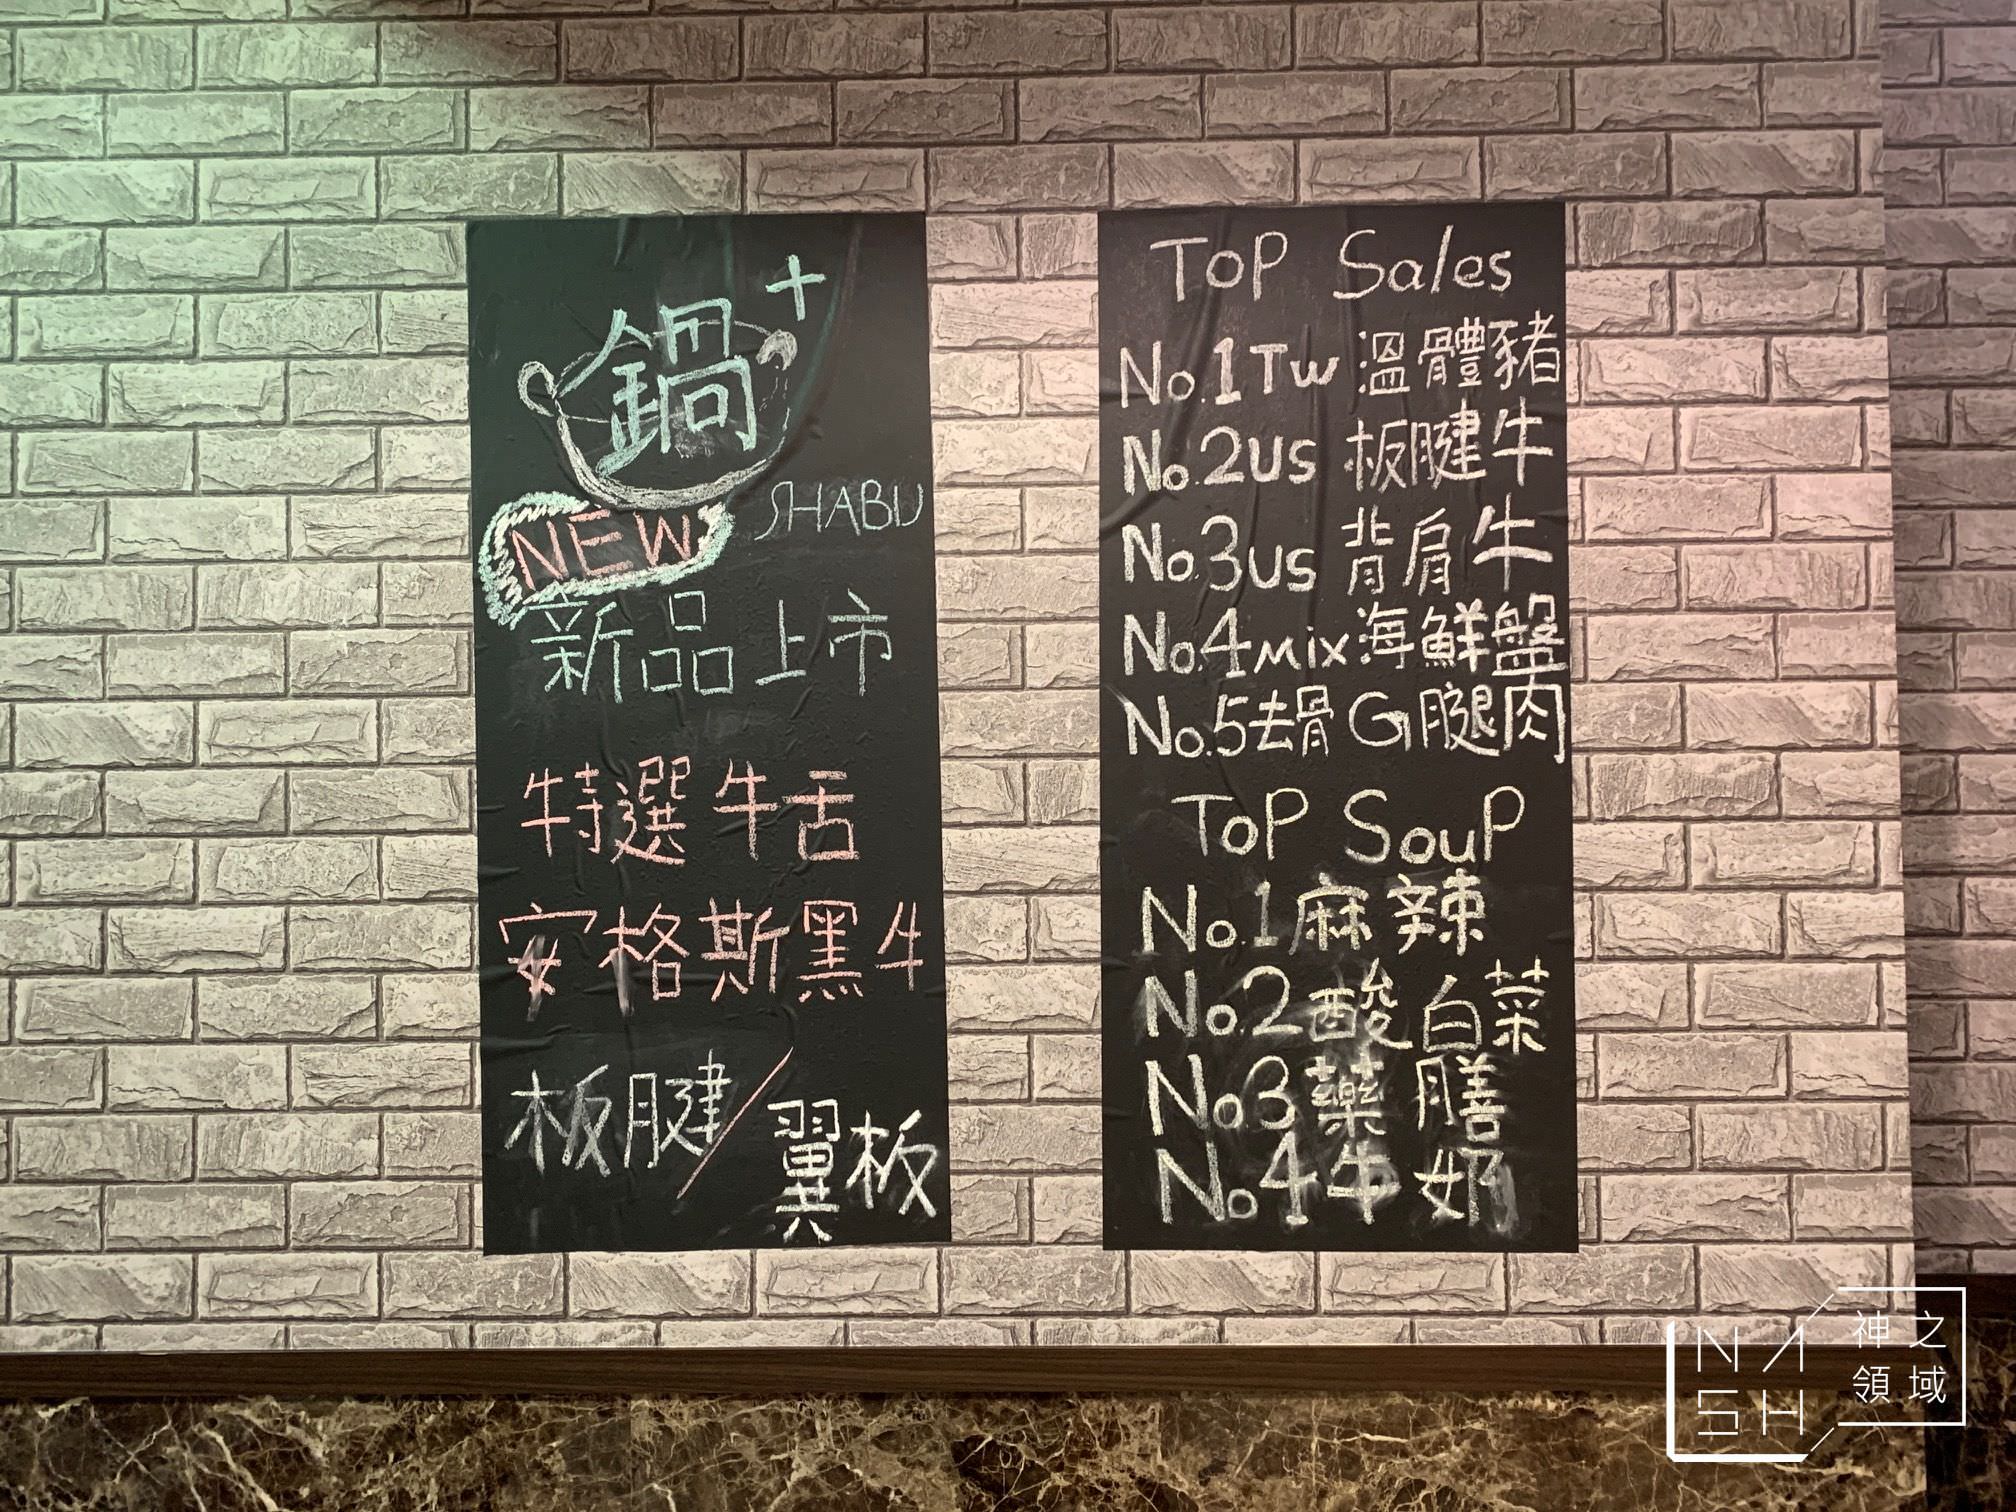 鍋+
SHABU
NEW
新品上市
特選牛舌
安格斯黑牛
板腱/翼板
Top Sales
No.1TW 溫體豬
No.2US 板腱牛
No.3US 背肩牛
No.4Mix海鮮盤
No.5去骨G腿肉
Top Soup
No.1麻辣
No.2酸白菜
No.3藥膳
No.4牛奶
NASH
神之領域